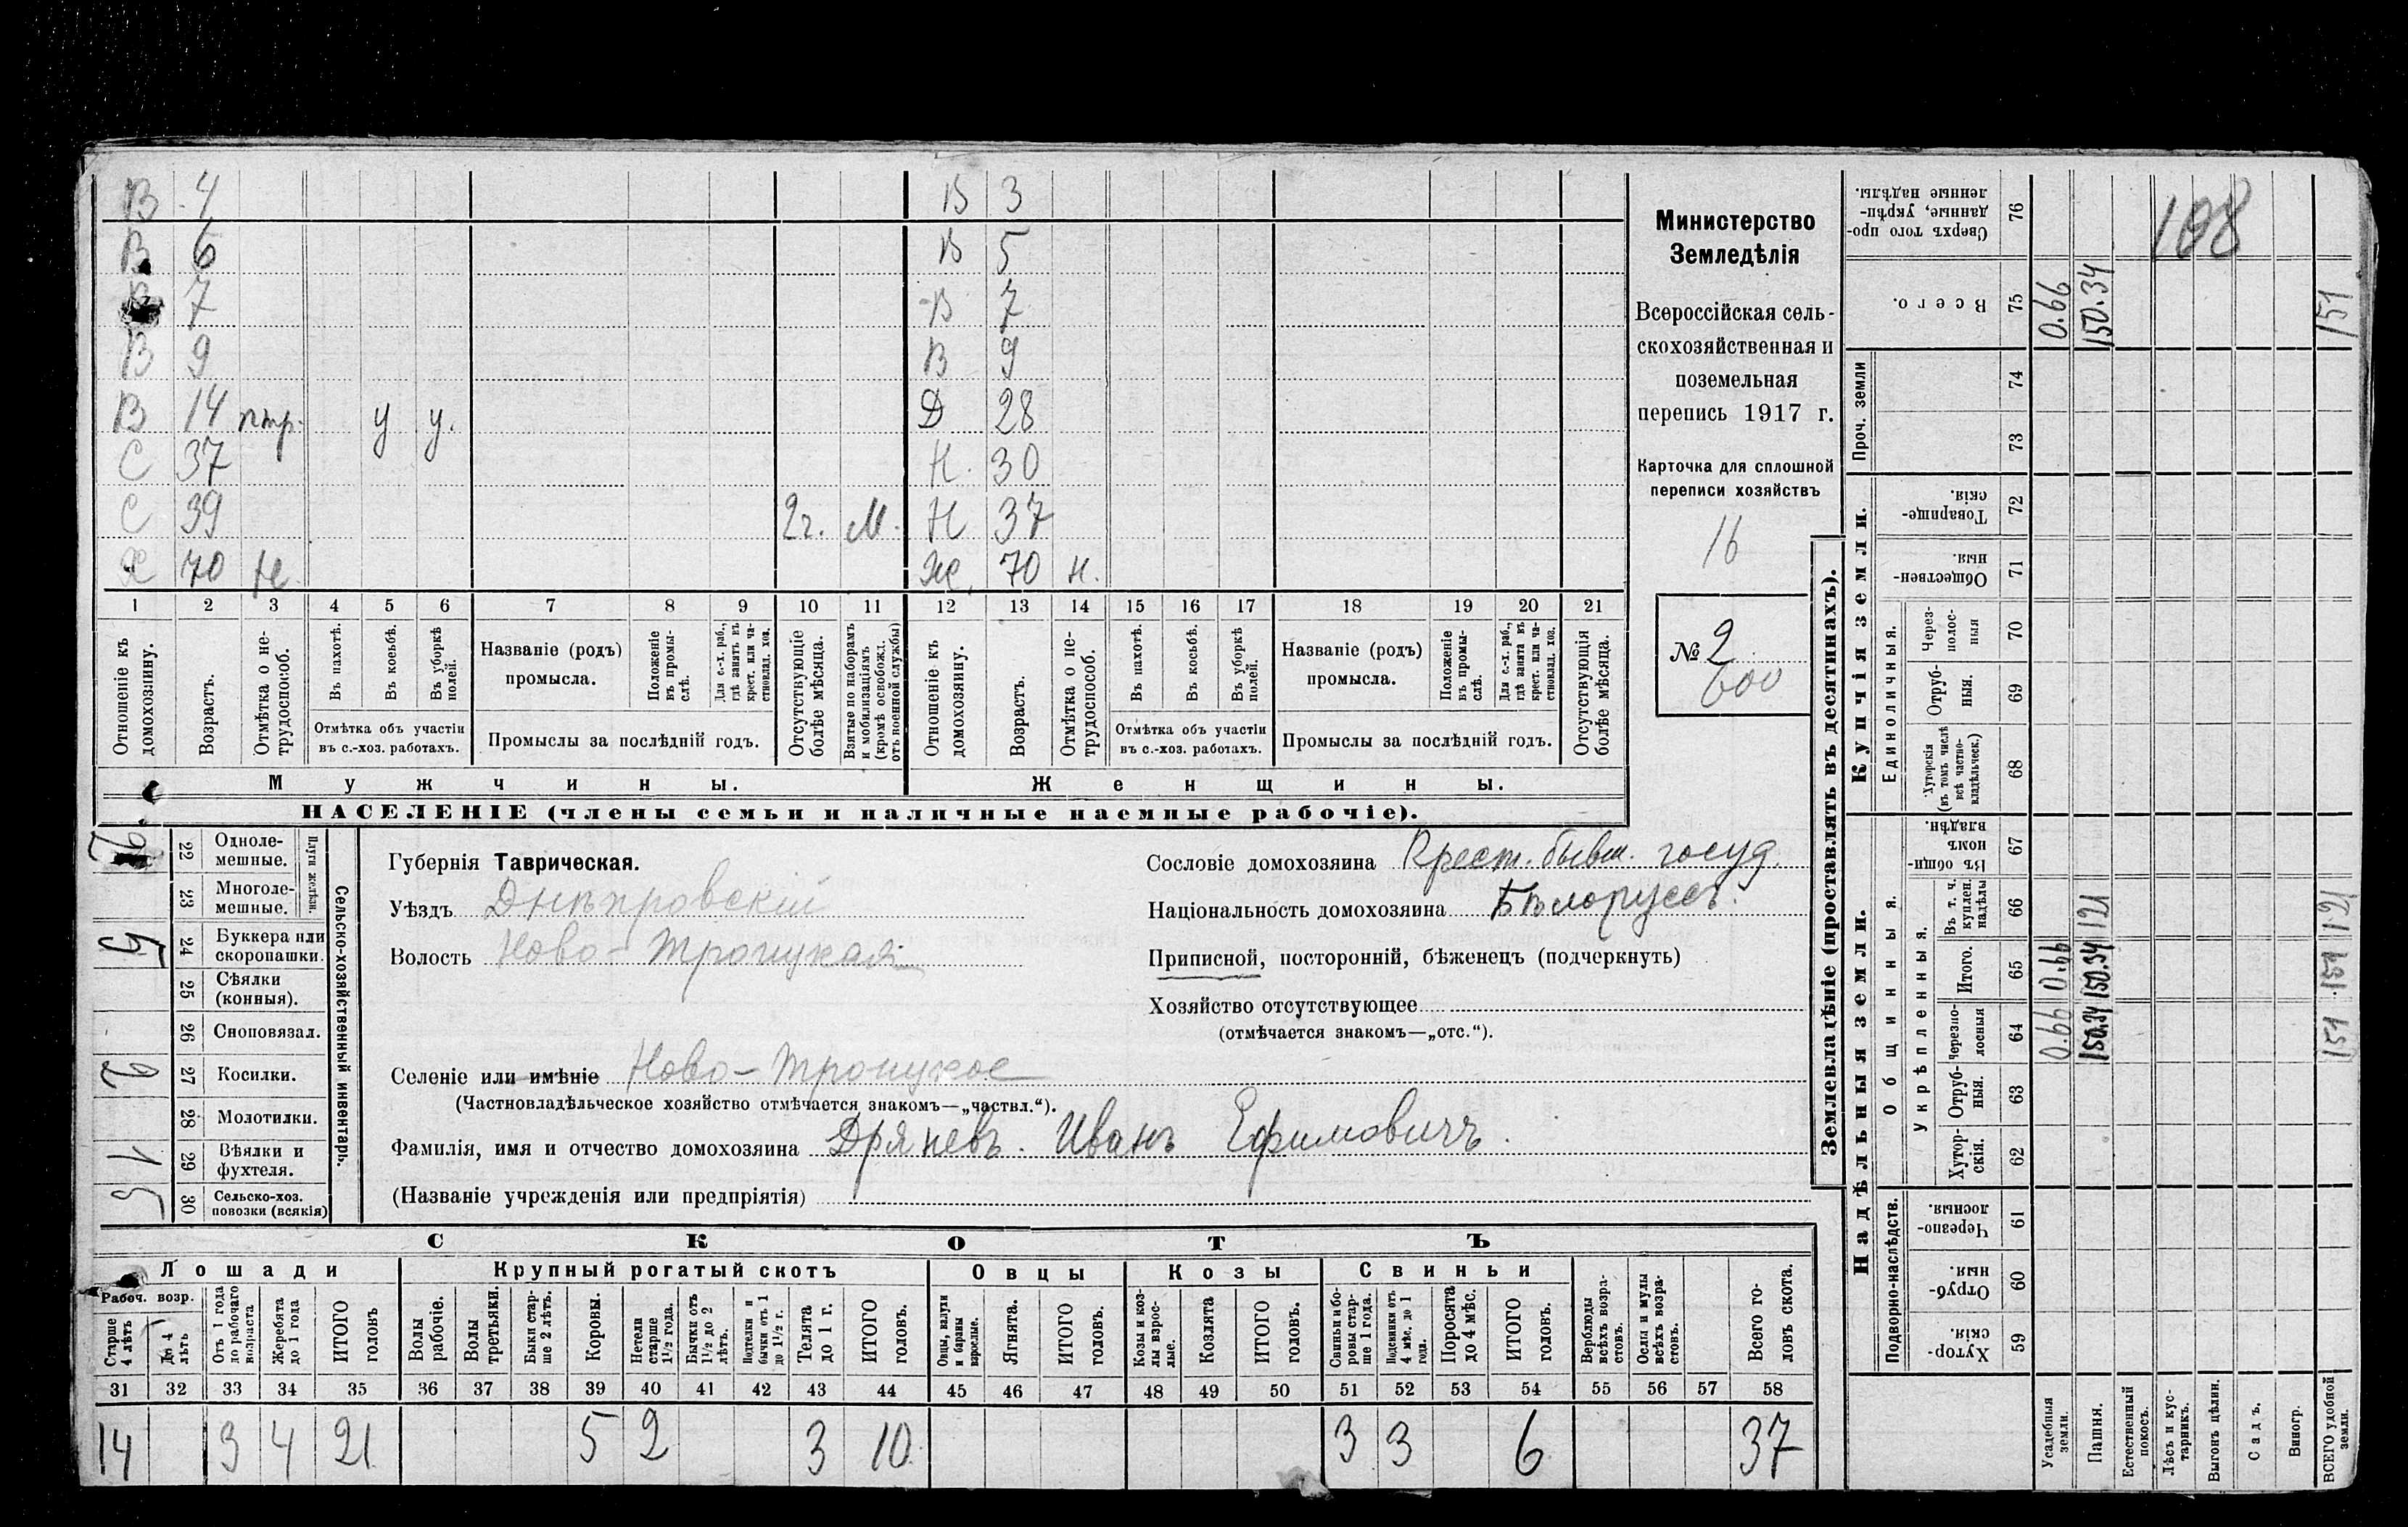 В 4 В 3
В 6 В 5
В 7 В 7
В 9 В 9
В 14 птр. у у. Д 28
С 37 Н. 30
С 39 2г. М. Н 37
Х 70 Н. Ж. 70 н.
1 2 3 4 5 6 7 8 9 10 11 12 13 14 15 16 17 18 19 20 21
Отношеніе къ домохозяину.
Возрастъ.
Отмѣтка о нетрудоспособ.
Въ пахотѣ.
Въ косьбѣ.
Въ уборкѣ полей.
Отмѣтка объ участіи въ с.-хоз. работахъ.
Названіе (родъ) промысла.
Положеніе въ промыслѣ.
Для с.-х. раб., гдѣ занятъ въ крест. или частновлад. хоз.
Промыслы за послѣдній годъ.
Отсутствующіе болѣе мѣсяца.
Взятые по наборамъ и мобилизаціямъ (кромѣ освобожд. отъ военной службы)
Отношеніе къ домохозяину.
Возрастъ.
Отмѣтка о нетрудоспособ.
Въ пахотѣ.
Въ косьбѣ.
Въ уборкѣ полей.
Отмѣтка объ участіи въ с.-хоз. работахъ.
Названіе (родъ) промысла.
Положеніе въ промыслѣ.
Для с.-х. раб., гдѣ занята въ крест. или частновлад. хоз.
Промыслы за послѣдній годъ.
Отсутствующія болѣе мѣсяца.
Мужчины. Женщины.
НАСЕЛЕНІЕ (члены семьи и наличные наемные рабочіе).
Министерство
Земледѣлія
Всероссійская сель-
скохозяйственная и
поземельная
перепись 1917 г.
Карточка для сплошной
переписи хозяйствъ
16
№ 2
600
Сельско-хозяйственный инвентарь.
Плуги желѣзн.
22 Одноле-
мешные.
23 Многоле-
мешные.
5 24 Буккера или
скоропашки.
25 Сѣялки
(конныя).
26 Сноповязал.
2 27 Косилки.
28 Молотилки.
1 29 Вѣялки и
фухтеля.
5 30 Сельско-хоз.
повозки (всякія)
Губернія Таврическая.
Уѣздъ Днѣпровскій
Волость Ново-Троицкая
Сословіе домохозяина Крест. бывш. госуд.
Національность домохозяина Бѣлоруссъ.
Приписной, посторонній, бѣженецъ (подчеркнуть)
Хозяйство отсутствующее
(отмѣчается знакомъ—„отс.“).
Селеніе или имѣніе Ново-Троицкое
(Частновладѣльческое хозяйство отмѣчается знакомъ—„частвл.“).
Фамилія, имя и отчество домохозяина Дряневъ. Иванъ Ефимовичъ.
(Названіе учрежденія или предпріятія)
СКОТЪ
Лошади Крупный рогатый скотъ Овцы Козы Свиньи
Рабоч. возр.
Старше 4 лѣтъ
До 4 лѣтъ
Отъ 1 года до рабочаго возраста
Жеребята до 1 года
ИТОГО головъ
Волы рабочіе.
Волы третьяки.
Быки старше 2 лѣтъ.
Коровы.
Нетели старше 1½ года.
Бычки отъ 1½ до 2 лѣтъ.
Подтелки и бычки отъ 1 до 1½ г.
Телята до 1 г.
ИТОГО головъ.
Овцы, валухи и бараны взрослые.
Ягнята.
ИТОГО головъ.
Козы и козлы взрослые.
Козлята
ИТОГО головъ.
Свиньи и боровы старше 1 года.
Подсвинки отъ 4 мѣс. до 1 года.
Поросята до 4 мѣс.
ИТОГО головъ.
Верблюды всѣхъ возрастовъ.
Ослы и мулы всѣхъ возрастовъ.
Всего головъ скота.
31 32 33 34 35 36 37 38 39 40 41 42 43 44 45 46 47 48 49 50 51 52 53 54 55 56 57 58
14 3 4 21 5 2 3 10 3 3 6 37
Землевладѣніе (проставлять въ десятинахъ).
Надѣльныя земли. Купчія земли.
Подворно-наслѣдств.
Общинныя.
Укрѣпленныя.
Единоличныя.
Проч. земли
Сверхъ того проданные, укрѣпленные надѣлы. 76 108
Всего. 75 0.66 150.34 151
74
73
Товарищескія. 72
Общественныя. 71
Чрезполосныя 70
Отрубныя. 69
Хуторскія (въ томъ числѣ всѣ частновладѣльческ.) 68
Въ общинномъ владѣн. 67
Въ т. ч. куплен. надѣлы 66 121 121
Итого. 65 0.66 150.34 151
Черезполосныя 64 0.66 150.34 151
Отрубныя. 63
Хуторскія. 62
Черезполосныя. 61
Отрубныя. 60
Хуторскія. 59
Усадебныя земли.
Пашня.
Естественный покосъ.
Лѣсъ и кустарникъ.
Выгонъ цѣлин.
Садъ.
Виногр.
ВСЕГО удобной земли.